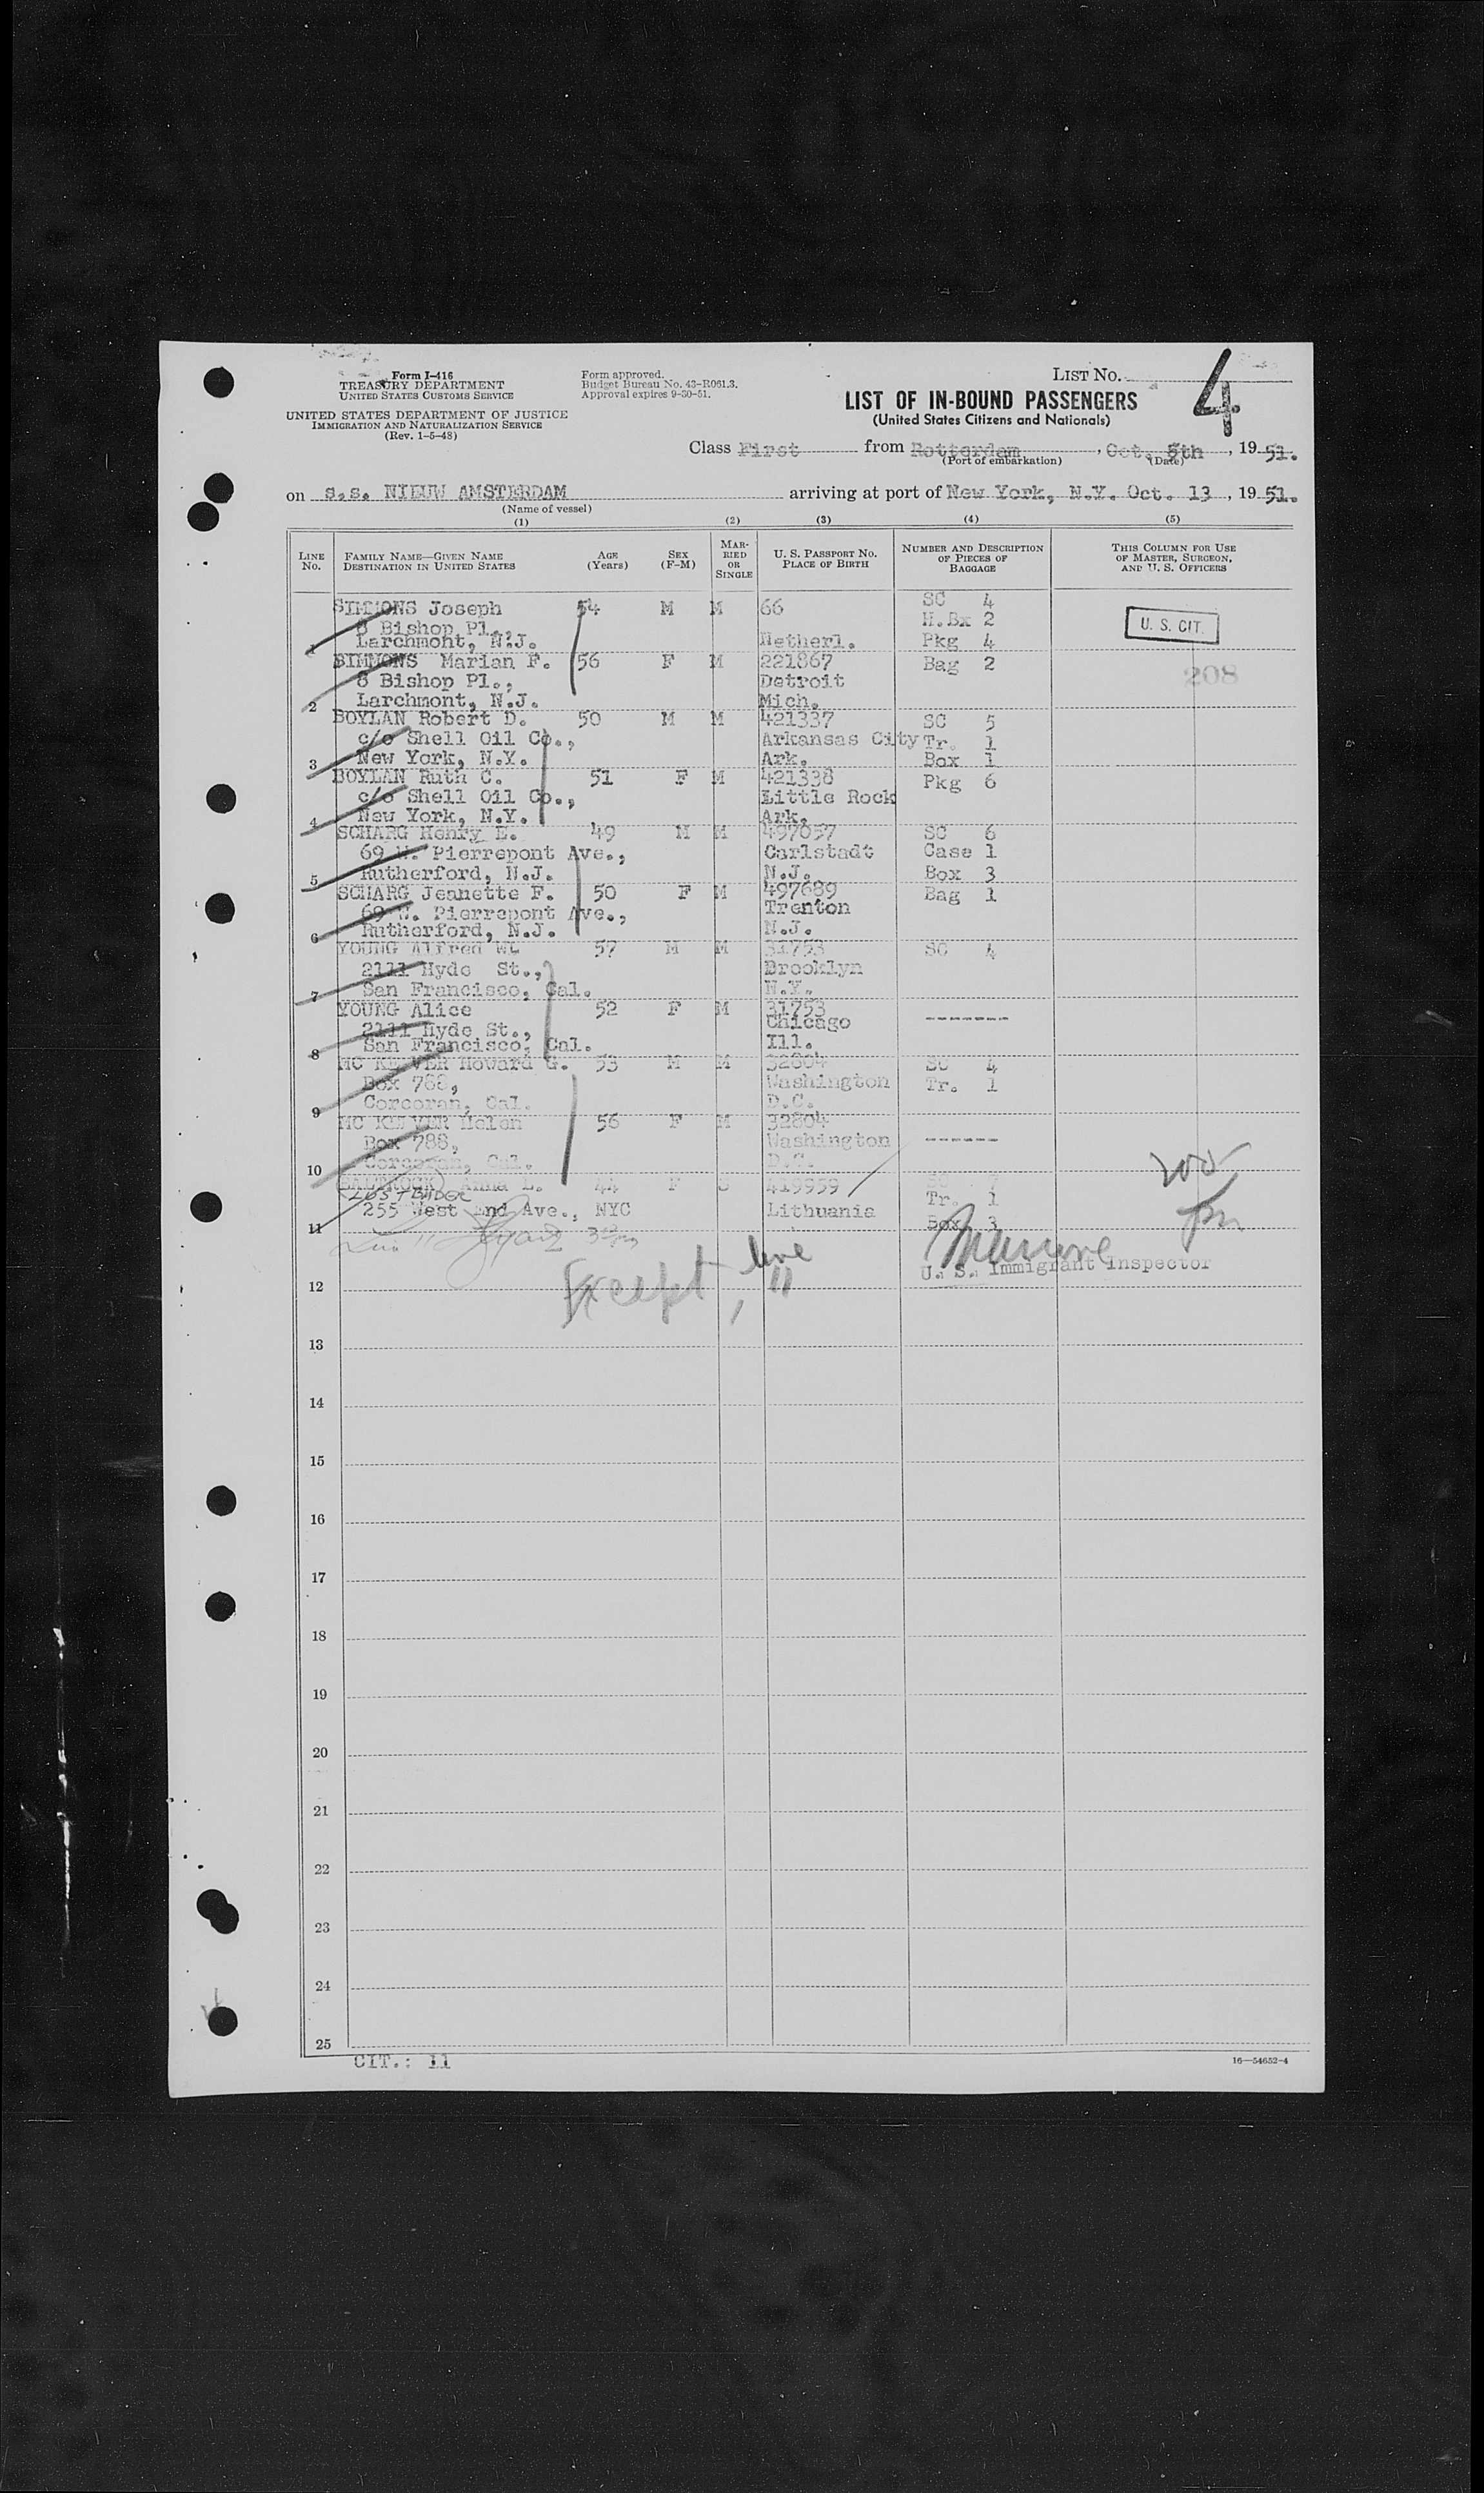 Form I-416
TREASURY DEPARTMENT
UNITED STATES CUSTOMS SERVICE
UNITED STATES DEPARTMENT OF JUSTICE
IMMIGRATION AND NATURALIZATION SERVICE
(Rev. 1-5-48)
Form approved.
Budget Bureau No. 43-R061.3.
Approval expires 9-30-51.
LIST NO. 4
LIST OF IN-BOUND PASSENGERS
(United States Citizens and Nationals)
Class First from Rotterdam, Oct. 5th, 19 51.
(Port of embarkation) (Date)
on s.s. NIEUW AMSTERDAM arriving at port of New York, N.Y. Oct. 13, 19 51.
(Name of vessel)
(1) (2) (3) (4) (5)
LINE NO. FAMILY NAME—GIVEN NAME DESTINATION IN UNITED STATES AGE (Years) SEX (F-M) MARRIED OR SINGLE U. S. PASSPORT NO. PLACE OF BIRTH NUMBER AND DESCRIPTION OF PIECES OF BAGGAGE THIS COLUMN FOR USE OF MASTER, SURGEON, AND U. S. OFFICERS
SIMMONS Joseph 54 M M 66 SC 4
8 Bishop Pl., H.Bx 2 U. S. CIT.
1 Larchmont, N.J. Netherl. Pkg 4
SIMMONS Marian F. 56 F M 221867 Bag 2
8 Bishop Pl., Detroit 208
2 Larchmont, N.J. Mich.
BOYLAN Robert D. 50 M M 421337 SC 5
c/o Shell Oil Co., Arkansas City Tr. 1
3 New York, N.Y. Ark. Box 1
BOYLAN Ruth C. 51 F M 421338 Pkg 6
c/o Shell Oil Co., Little Rock
4 New York, N.Y. Ark.
SCHARG Henry E. 49 M M 497057 SC 6
69 W. Pierrepont Ave., Carlstadt Case 1
5 Rutherford, N.J. N.J. Box 3
SCHARG Jeanette F. 50 F M 497689 Bag 1
69 W. Pierrepont Ave., Trenton
6 Rutherford, N.J. N.J.
YOUNG Alfred WC 57 M M 31753 SC 4
2111 Hyde St., Brooklyn
7 San Francisco, Cal. N.Y.
YOUNG Alice 52 F M 31753 -------
2111 Hyde St., Chicago
8 San Francisco, Cal. Ill.
Howard G. 53 M M 32804 SC 4
Box 788, Washington Tr. 1
9 Corcoran, Cal. D.C.
Helen 56 F M 32804
Box 788, Washington ------
10 Corcoran, Cal. D.C.
Anna L. 44 F S 419959 SC 7
Tr. 1
255 West End Ave., NYC Lithuania
11 Box 3
Except line 11
U. S. Immigrant Inspector
12
13
14
15
16
17
18
19
20
21
22
23
24
25
CIT.: 11
16—54652-4